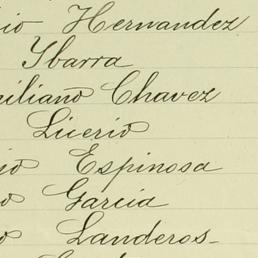 io Hernandez
Ybarra
iliano Chavez
Licerio
io Espinosa
o Garcia
o Landeros-